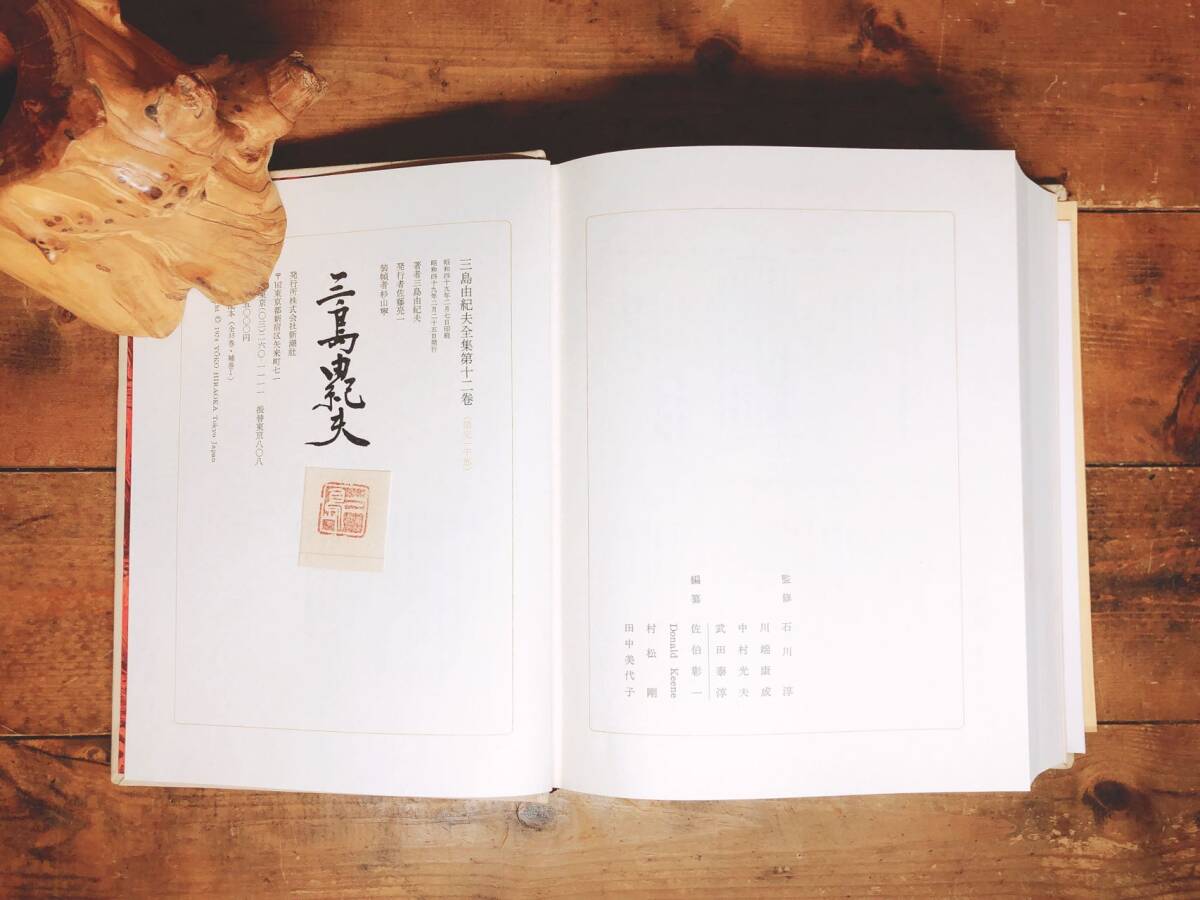 監修 石川 淳
川端康成
中村光夫
武田泰淳
編纂 佐伯彰一
Donald Keene
村松 剛
田中美代子
三島由紀夫全集第十二巻
昭和四十九年二月七日印刷
昭和四十九年二月二十五日発行
著者三島由紀夫
発行者佐藤亮一
装幀者杉山寧
三島由紀夫
発行所株式会社新潮社
東京都新宿区矢来町七一
振替東京八〇八
〇〇〇円
© 1974 YŌKO HIRAOKA, Tokyo Japan